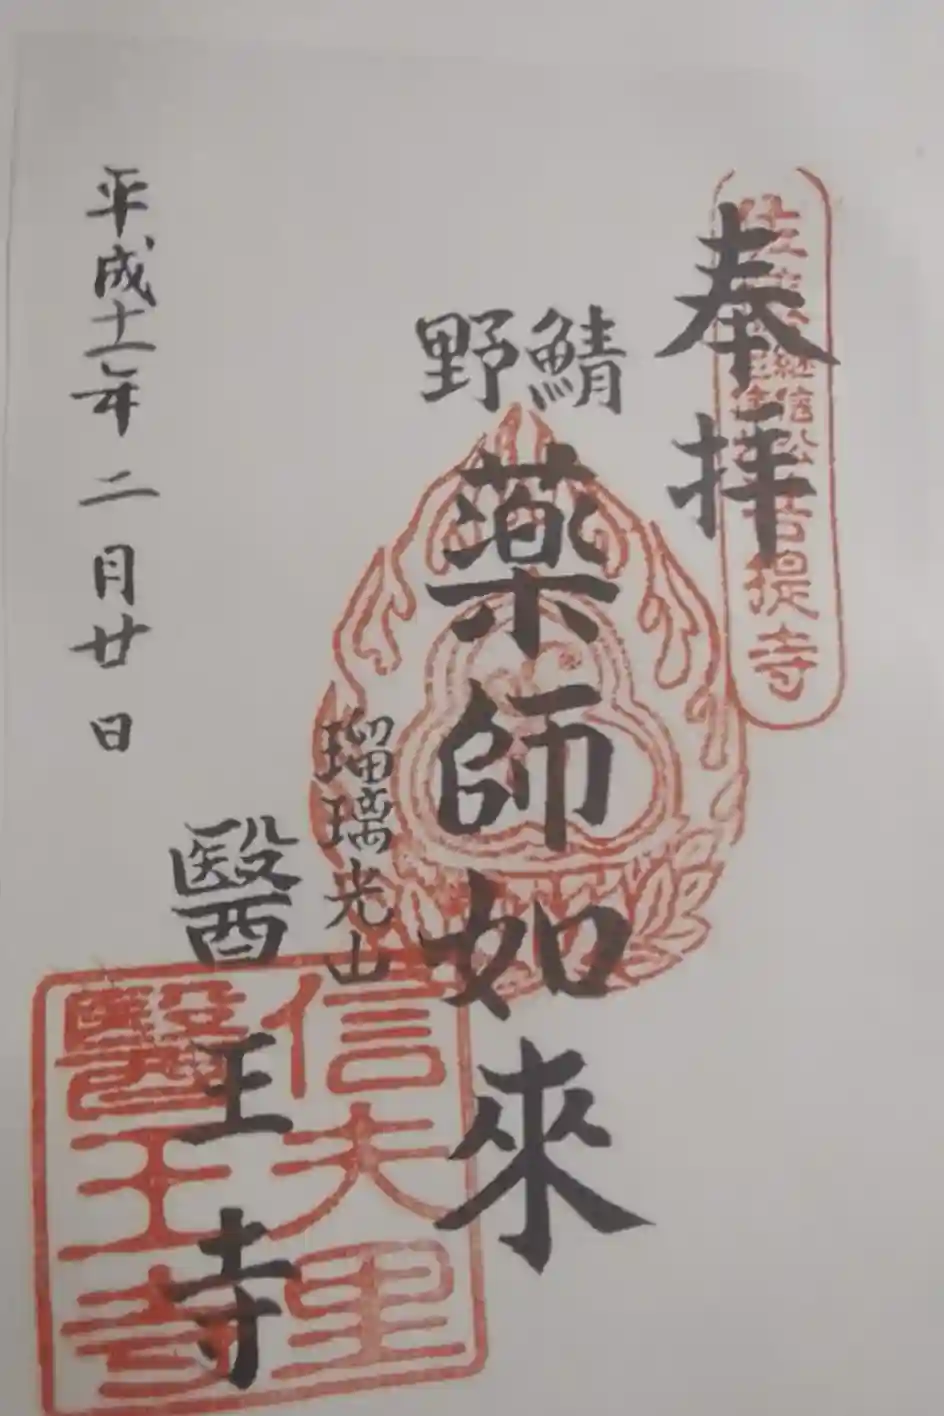 奉拝
継信公
菩提寺
鯖野
薬師如來
瑠璃光山
醫王寺
信夫里
醫王寺
平成十一年二月廿日